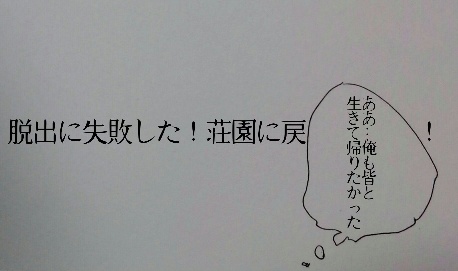 脱出に失敗した！荘園に戻
ああ…俺も皆と
生きて帰りたかった
！